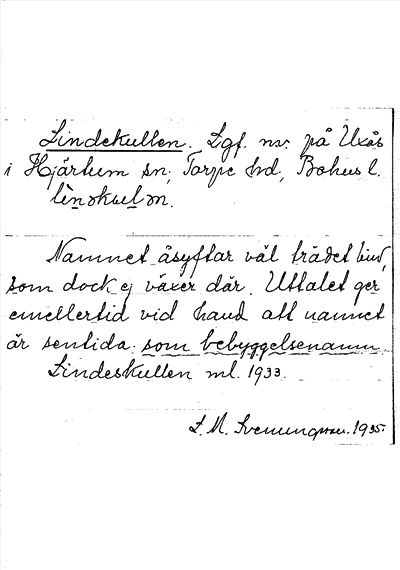 Lindekullen. Lgf. nv. på Uxås
i Hjärtum sn, Torpe hd, Bohus l.
Namnet åsyftar väl trädet lind,
som dock ej växer där. Uttalet ger
emellertid vid hand att namnet
är sentida som bebyggelsenamn.
Lindeskullen ml. 1933.
S. M. Svenungsson. 1935.